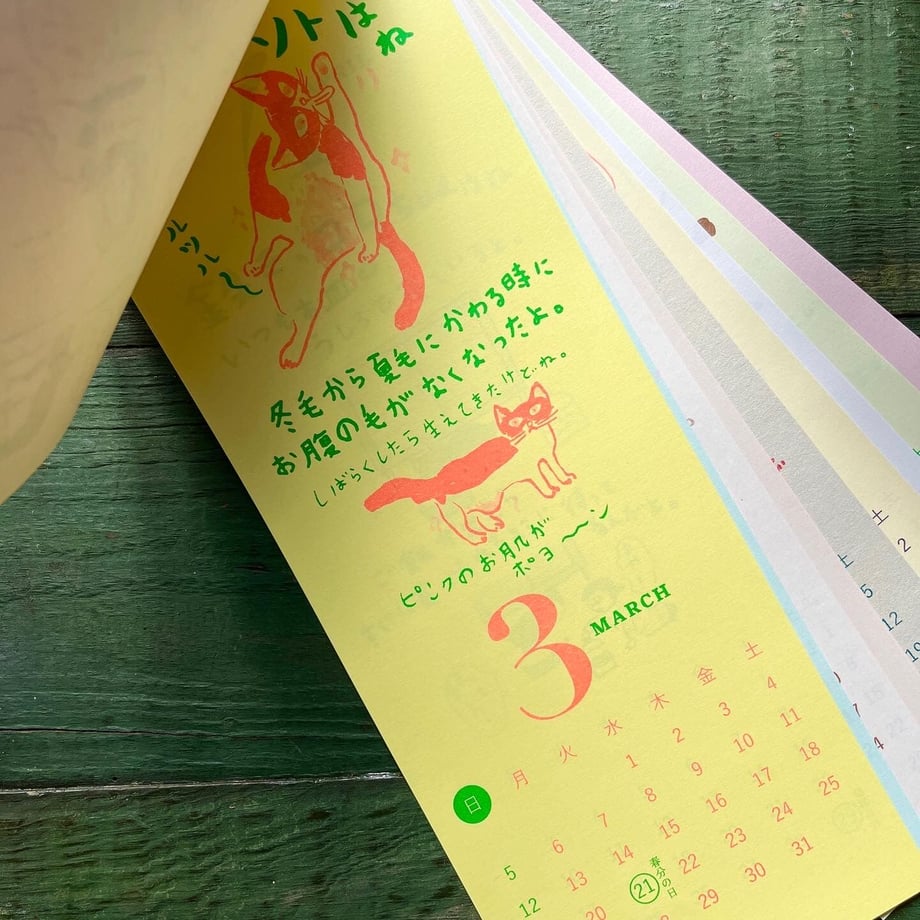 ソトはね
ルツル〜
冬毛から夏毛にかわる時に
お腹の毛がなくなったよ。
しばらくしたら生えてきたけどね。
ピンクのお肌が
ポヨ〜ン
3 MARCH
日 月 火 水 木 金 土
1 2 3 4
5 6 7 8 9 10 11
12 13 14 15 16 17 18
20 21 春分の日 22 23 24 25
29 30 31
土
2
土
5
12
19
7
4